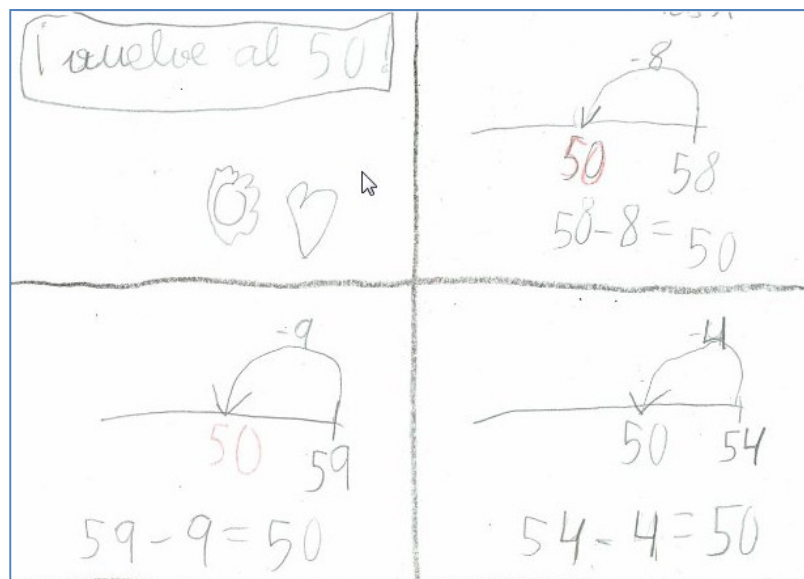 ¡vuelve al 50!
-8
50 58
58-8=50
-9
50 59
59-9=50
-4
50 54
54-4=50